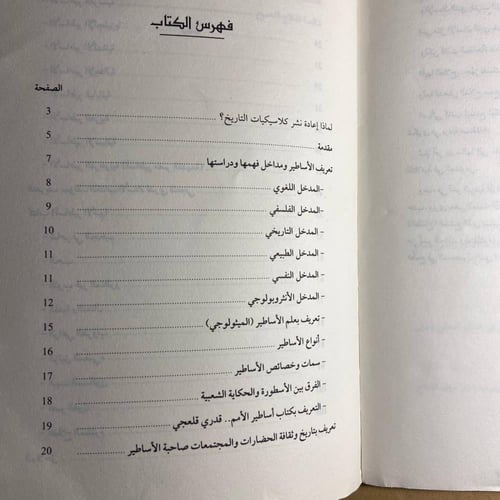 فهرس الكتاب
الصفحة
لماذا إعادة نشر كلاسيكيات التاريخ؟ 3
مقدمة 5
تعريف الأساطير ومداخل فهمها ودراستها 7
-المدخل اللغوي 8
-المدخل الفلسفي 9
-المدخل التاريخي 10
-المدخل الطبيعي 11
-المدخل النفسي 11
-المدخل الأنثروبولوجي 12
- تعريف بعلم الأساطير (الميثولوجي) 15
- أنواع الأساطير 16
- سمات وخصائص الأساطير 17
- الفرق بين الأسطورة والحكاية الشعبية 18
- التعريف بكتاب أساطير الأمم.. قدري قلعجي 19
تعريف بتاريخ وثقافة الحضارات والمجتمعات صاحبة الأساطير 20